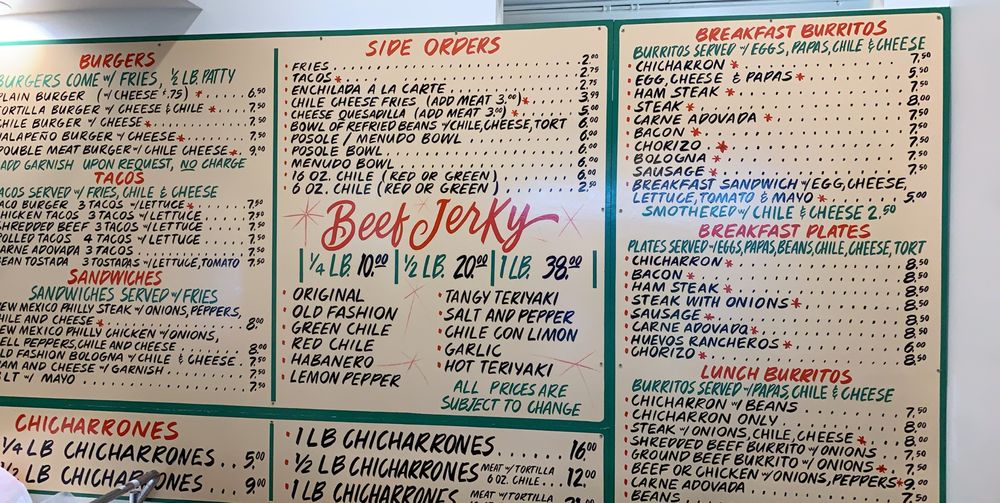 BURGERS
BURGERS COME w/ FRIES, ½ LB PATTY
PLAIN BURGER (w/ CHEESE $.75) * 6.50
TORTILLA BURGER w/ CHEESE & CHILE * 7.50
CHILE BURGER w/ CHEESE * 7.50
JALAPEÑO BURGER w/ CHEESE * 7.50
DOUBLE MEAT BURGER w/ CHILE CHEESE * 9.00
ADD GARNISH UPON REQUEST, NO CHARGE
TACOS
TACOS SERVED w/ FRIES, CHILE & CHEESE
TACO BURGER 3 TACOS w/ LETTUCE * 7.50
CHICKEN TACOS 3 TACOS w/ LETTUCE 7.50
SHREDDED BEEF 3 TACOS w/ LETTUCE 7.50
ROLLED TACOS 4 TACOS w/ LETTUCE 7.50
CARNE ADOVADA 3 TACOS 7.50
BEAN TOSTADA 3 TOSTADAS w/ LETTUCE, TOMATO 7.50
SANDWICHES
SANDWICHES SERVED w/ FRIES
NEW MEXICO PHILLY STEAK w/ ONIONS, PEPPERS,
CHILE AND CHEESE * 8.00
NEW MEXICO PHILLY CHICKEN w/ ONIONS,
BELL PEPPERS, CHILE AND CHEESE 8.00
OLD FASHION BOLOGNA w/ CHILE & CHEESE 7.50
HAM AND CHEESE w/ GARNISH 7.50
BLT w/ MAYO 7.50
CHICHARRONES
¼ LB CHICHARRONES 5.00
½ LB CHICHARRONES 9.00
SIDE ORDERS
FRIES 2.00
TACOS * 2.75
ENCHILADA A LA CARTE 2.75
CHILE CHEESE FRIES (ADD MEAT 3.00) * 3.99
CHEESE QUESADILLA (ADD MEAT 3.00) * 5.00
BOWL OF REFRIED BEANS w/ CHILE, CHEESE, TORT 6.00
POSOLE / MENUDO BOWL 6.00
POSOLE BOWL 6.00
MENUDO BOWL 6.00
16 OZ. CHILE (RED OR GREEN) 6.00
6 OZ. CHILE (RED OR GREEN) 2.50
Beef Jerky
¼ LB. 10.00 ½ LB. 20.00 1 LB. 38.00
ORIGINAL
OLD FASHION
GREEN CHILE
RED CHILE
HABANERO
LEMON PEPPER
TANGY TERIYAKI
SALT AND PEPPER
CHILE CON LIMON
GARLIC
HOT TERIYAKI
ALL PRICES ARE
SUBJECT TO CHANGE
1 LB CHICHARRONES 16.00
½ LB CHICHARRONES MEAT w/ TORTILLA 6 OZ. CHILE 12.00
1 LB CHICHARRONES MEAT w/ TORTILLA
BREAKFAST BURRITOS
BURRITOS SERVED w/ EGGS, PAPAS, CHILE & CHEESE
CHICHARRON * 7.50
EGG, CHEESE & PAPAS * 5.50
HAM STEAK * 7.50
STEAK * 8.00
CARNE ADOVADA * 7.50
BACON * 7.50
CHORIZO * 7.50
BOLOGNA * 7.50
SAUSAGE * 7.50
BREAKFAST SANDWICH w/ EGG, CHEESE,
LETTUCE, TOMATO & MAYO * 5.00
SMOTHERED w/ CHILE & CHEESE 2.50
BREAKFAST PLATES
PLATES SERVED w/ EGGS, PAPAS, BEANS, CHILE, CHEESE, TORT
CHICHARRON * 8.50
BACON * 8.50
HAM STEAK * 8.50
STEAK WITH ONIONS * 8.50
SAUSAGE * 8.50
CARNE ADOVADA * 8.50
HUEVOS RANCHEROS * 6.00
CHORIZO * 8.50
LUNCH BURRITOS
BURRITOS SERVED w/ PAPAS, CHILE & CHEESE
CHICHARRON w/ BEANS 7.50
CHICHARRON ONLY 8.00
STEAK w/ ONIONS, CHILE, CHEESE * 8.00
SHREDDED BEEF BURRITO w/ ONIONS 7.50
GROUND BEEF BURRITO w/ ONIONS * 7.50
BEEF OR CHICKEN w/ ONIONS, PEPPERS * 9.00
CARNE ADOVADA 7.50
BEANS